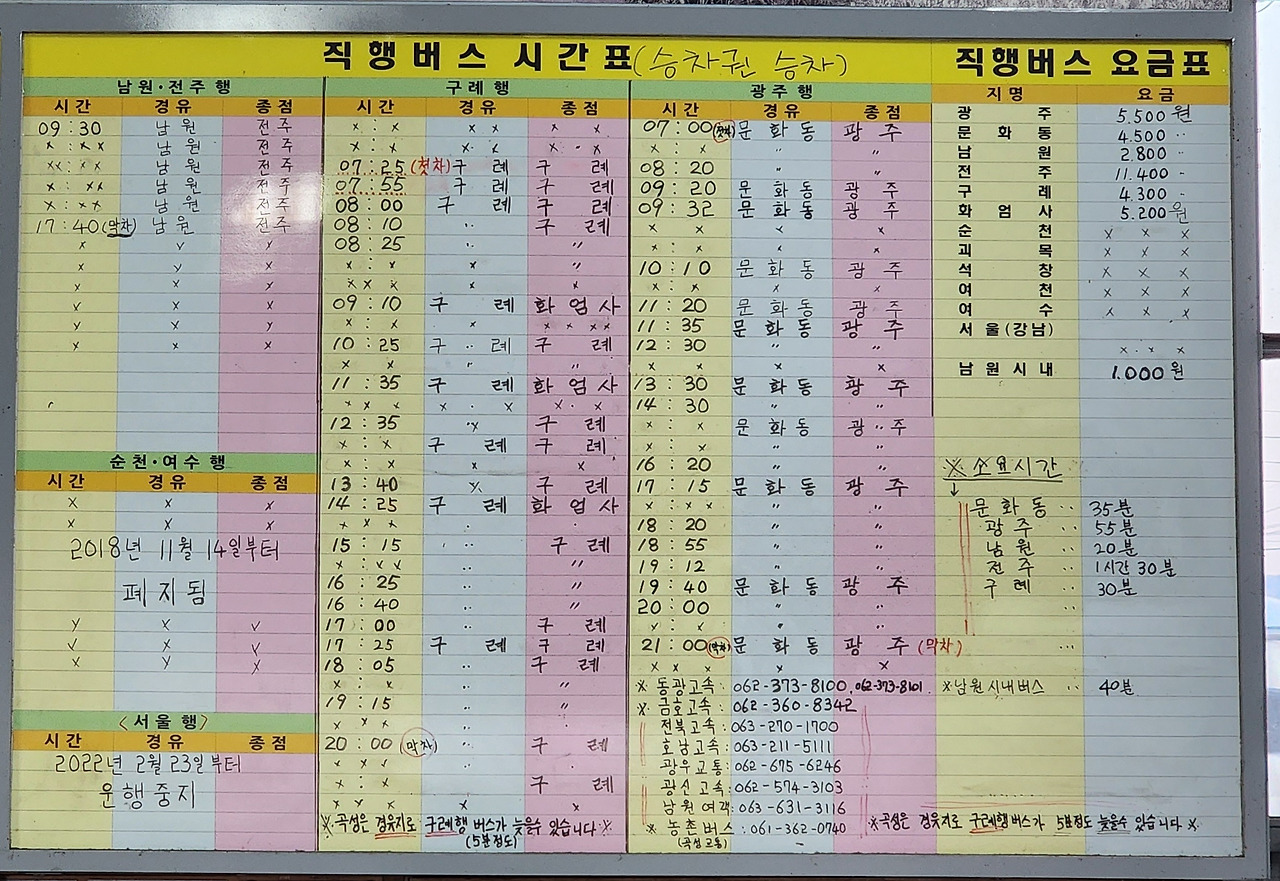 직행버스 시간표(승차권 승차)
남원·전주 행
시간 경유 종점
09:30 남원 전주
x:xx 남원 전주
xx:xx 남원 전주
x:xx 남원 전주
x:xx 남원 전주
17:40(막차) 남원 전주
x v x
x y x
x x x
x x x
y x x
x x x
순천·여수 행
시간 경유 종점
x x x
x x x
2018년 11월 14일부터
폐지됨
y x v
v x v
x y x
<서울 행>
시간 경유 종점
2022년 2월 23일부터
운행중지
구례 행
시간 경유 종점
x:x xx x x
x:x x·x x·x
07:25(첫차) 구례 구례
07:55 구례 구례
08:00 구례 구례
08:10 ·· 구례
08:25 ·· 〃
x:x x 〃
xx:x
09:10 구례 화엄사
x:x x x x x x
10:25 구례 구례
x x 〃 〃
11:35 구례 화엄사
x x x x · x x · x
12:35 〃x 구례
x:x 구례 구례
x:x x x
13:40 x 구례
14:25 구례 화엄사
x x x ·
15:15 ·· 구례
x:vv ·· 〃
16:25 ·· 〃
16:40 ·· 〃
17:00 ·· 구례
17:25 구례 구례
18:05 ·· 구례
x:x ·· 〃
19:15 ·· 〃
x x x
20:00 (막차) ·· 구례
x x v ··
x:x ·· 구례
x y x x x
※곡성은 경유지로 구례행 버스가 늦을수 있습니다※
(5분정도)
광주 행
시간 경유 종점
07:00(첫차) 문화동 광주
x:x 〃 〃
08:20 〃 〃
09:20 문화동 광주
09:32 문화동 광주
x:x x x
x:x x x
10:10 문화동 광주
x:x x x
11:20 문화동 광주
11:35 문화동 광주
12:30 〃 〃
x x x x
13:30 문화동 광주
14:30 〃 〃
x:x 문화동 광주
x:x 〃 〃
16:20 〃 〃
17:15 문화동 광주
x:x x 〃 〃
18:20 〃 〃
18:55 〃 〃
19:12 〃 〃
19:40 문화동 광주
20:00 〃 〃
x:x 〃 〃
21:00(막차) 문화동 광주 (막차)
x x x x x
※ 동광고속: 062-373-8100, 062-373-8101
※ 금호고속: 062-360-8342
전북고속: 063-270-1700
호남고속: 063-211-5111
광우교통: 062-675-6246
광신고속: 062-574-3103
남원여객: 063-631-3116
※ 농촌버스: 061-362-0740
(곡성교통)
직행버스 요금표
지명 요금
광주 5.500원
문화동 4.500 ··
남원 2.800 ··
전주 11.400 ··
구례 4.300 ··
화엄사 5.200원
순천 x x x
괴목 x x x
석창 x x x
여천 x x x
여수 x x x
서울(강남)
x·x·x
남원시내 1.000원
※소요시간
↓
문화동 ·· 35분
광주 ·· 55분
남원 ·· 20분
전주 ·· 1시간 30분
구례 ·· 30분
··
···
※남원시내버스 ·· 40분
※곡성은 경유지로 구례행버스가 5분정도 늦을수 있습니다※